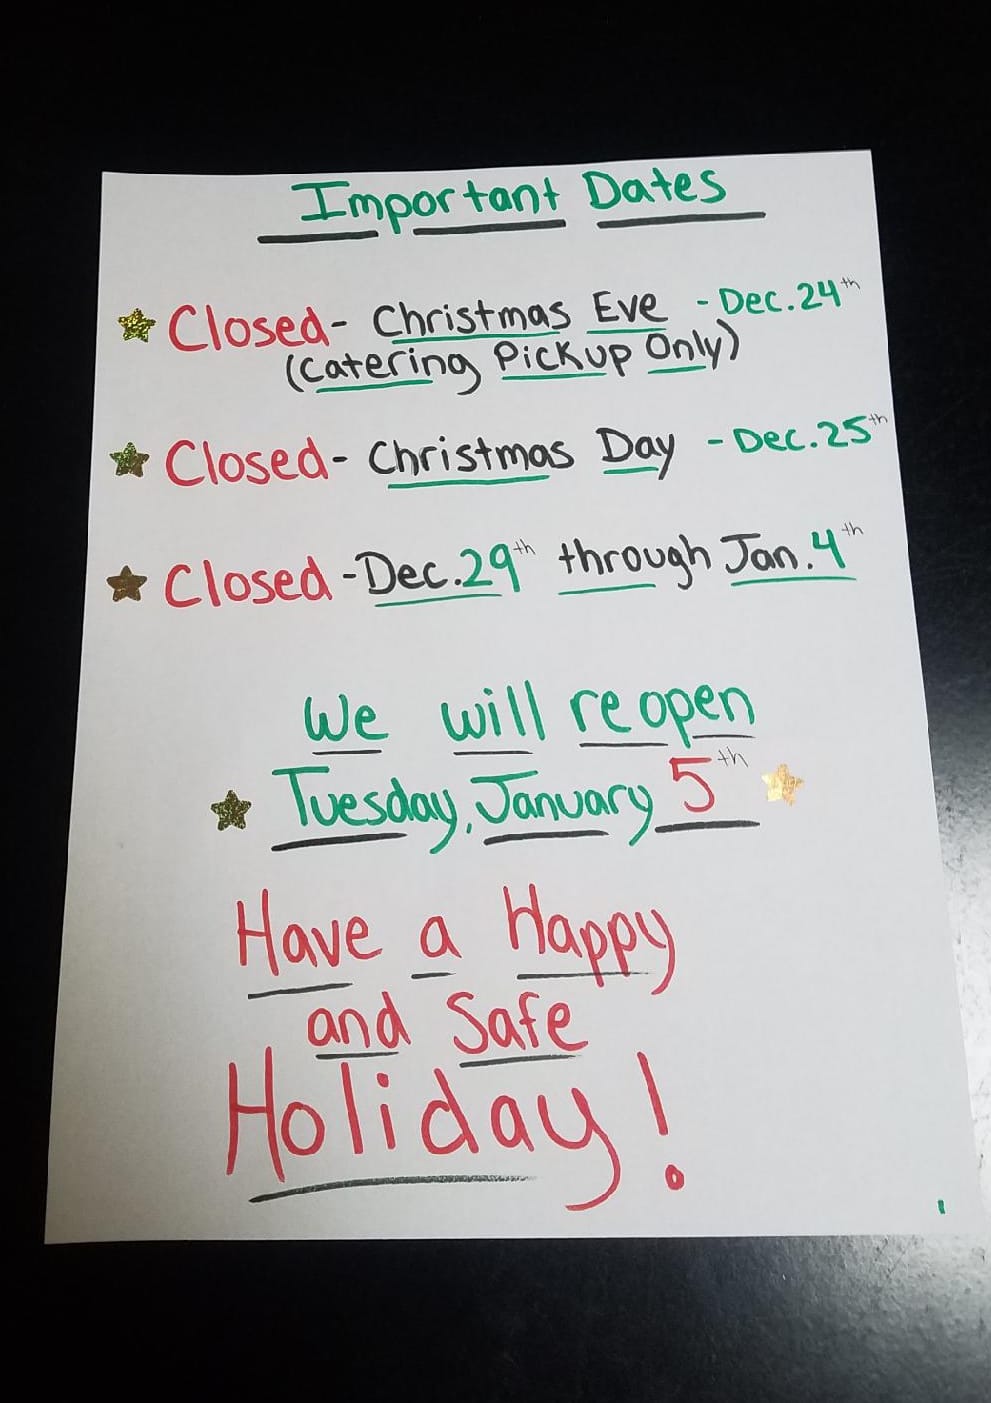 Important Dates
Closed - Christmas Eve - Dec. 24th
(Catering Pickup Only)
Closed - Christmas Day - Dec. 25th
Closed - Dec. 29th through Jan. 4th
We will reopen
Tuesday, January 5th
Have a Happy
and Safe
Holiday!